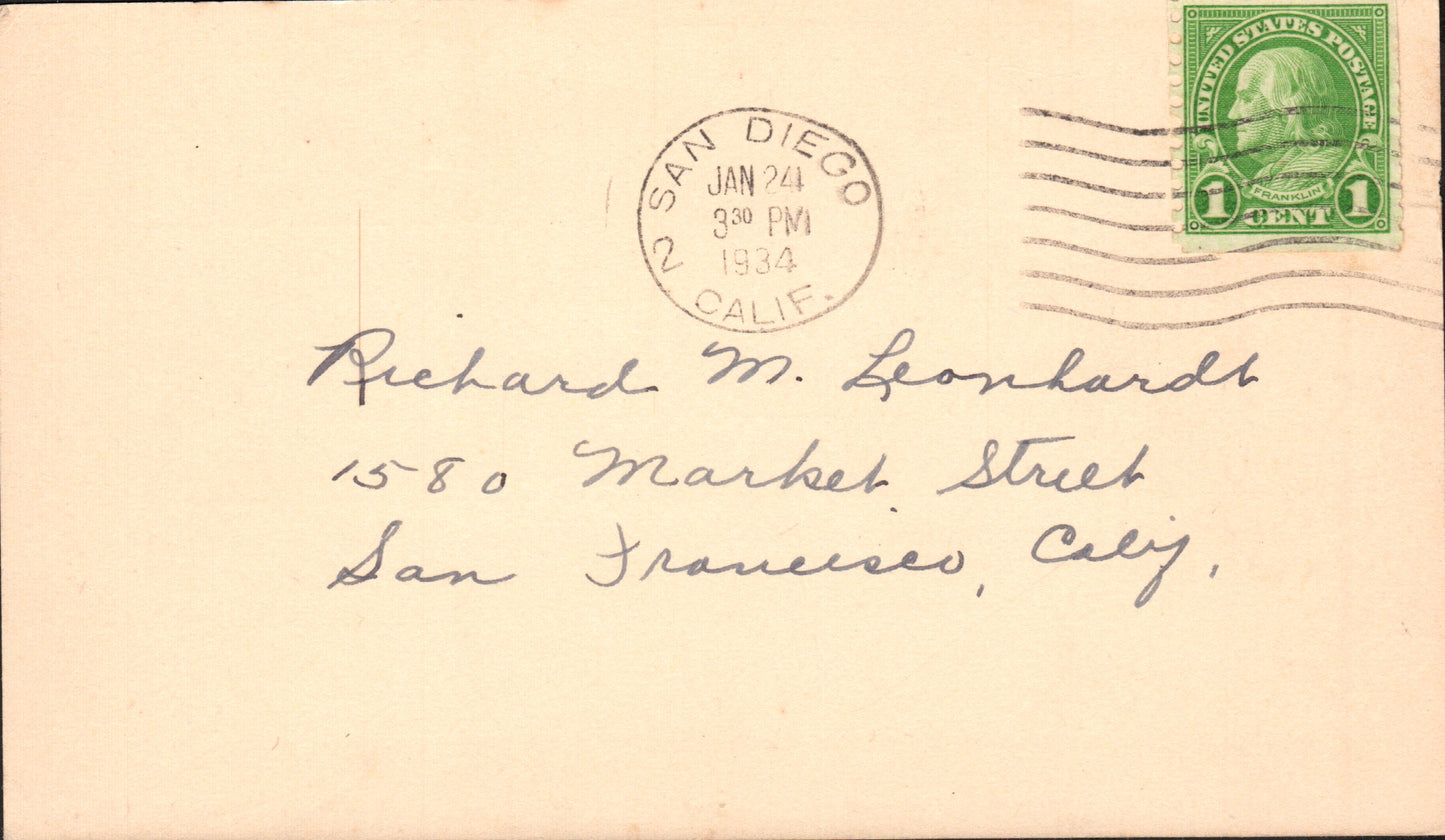 UNITED STATES POSTAGE
FRANKLIN
1 CENT 1
SAN DIEGO
JAN 24
3 30 PM
1934
2
CALIF.
Richard M. Leonhardt
1580 Market Street
San Francisco, Calif.